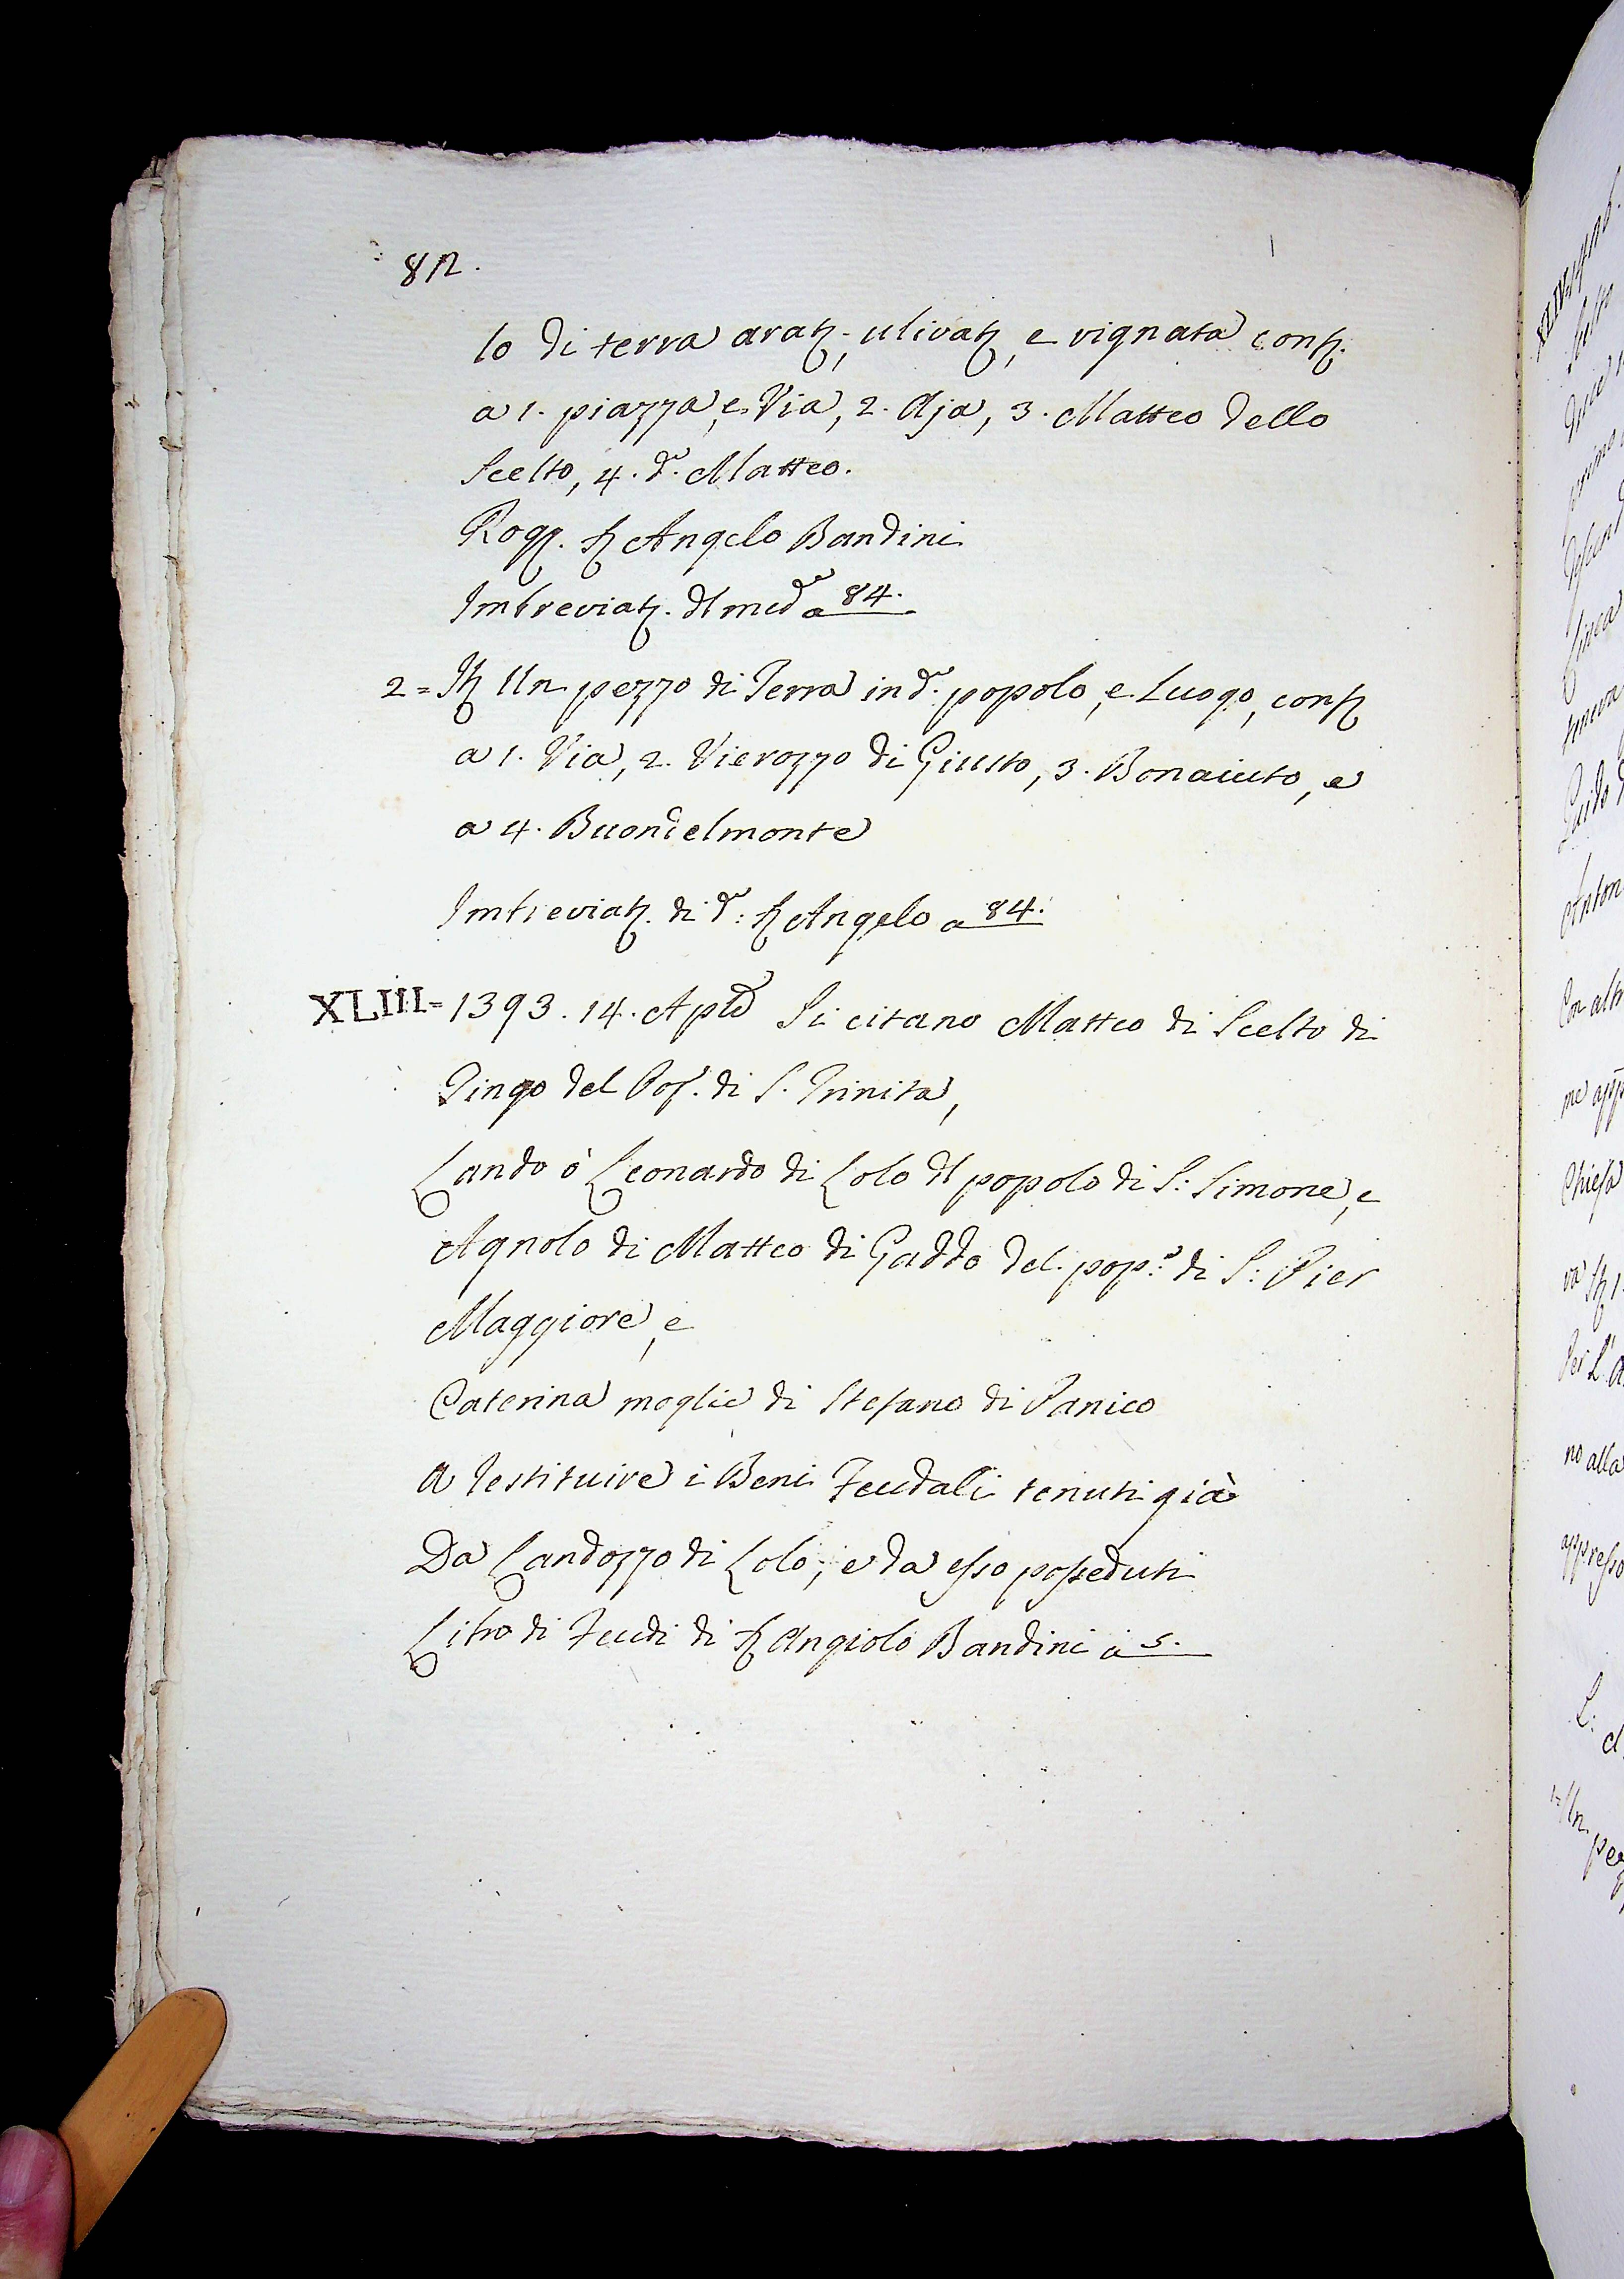 82.
lo di terra arat., ulivat, e vignata conf.
a 1. piazza, e Via, 2. Aja, 3. Matteo dello
Scelto, 4. d.º Matteo.
Rog. S. Angelo Bandini
Imbreviat. dl medº a 84.
2 = It Un pezzo di Terra in d.º popolo, e Luogo, conf
a 1. Via, 2. Vierozzo di Giusto, 3. Bonaiuto, e
a 4. Buondelmonte
Imbreviat. di d.º: S. Angelo a 84.
XLIII = 1393. 14. Aple Si citano Matteo di Scelto di
Tingo del Pop. di S. Trinita,
Lando ò Leonardo di Lolo dl popolo di S: Simone, e
Agnolo di Matteo di Gaddo del pop.º di S: Pier
Maggiore, e
Caterina moglie di Stefano di Panico
a restituire i Beni Feudali tenuti già
Da Landozzo di Lolo; e da esso posseduti
Libro di Feudi di S. Angiolo Bandini à 5.